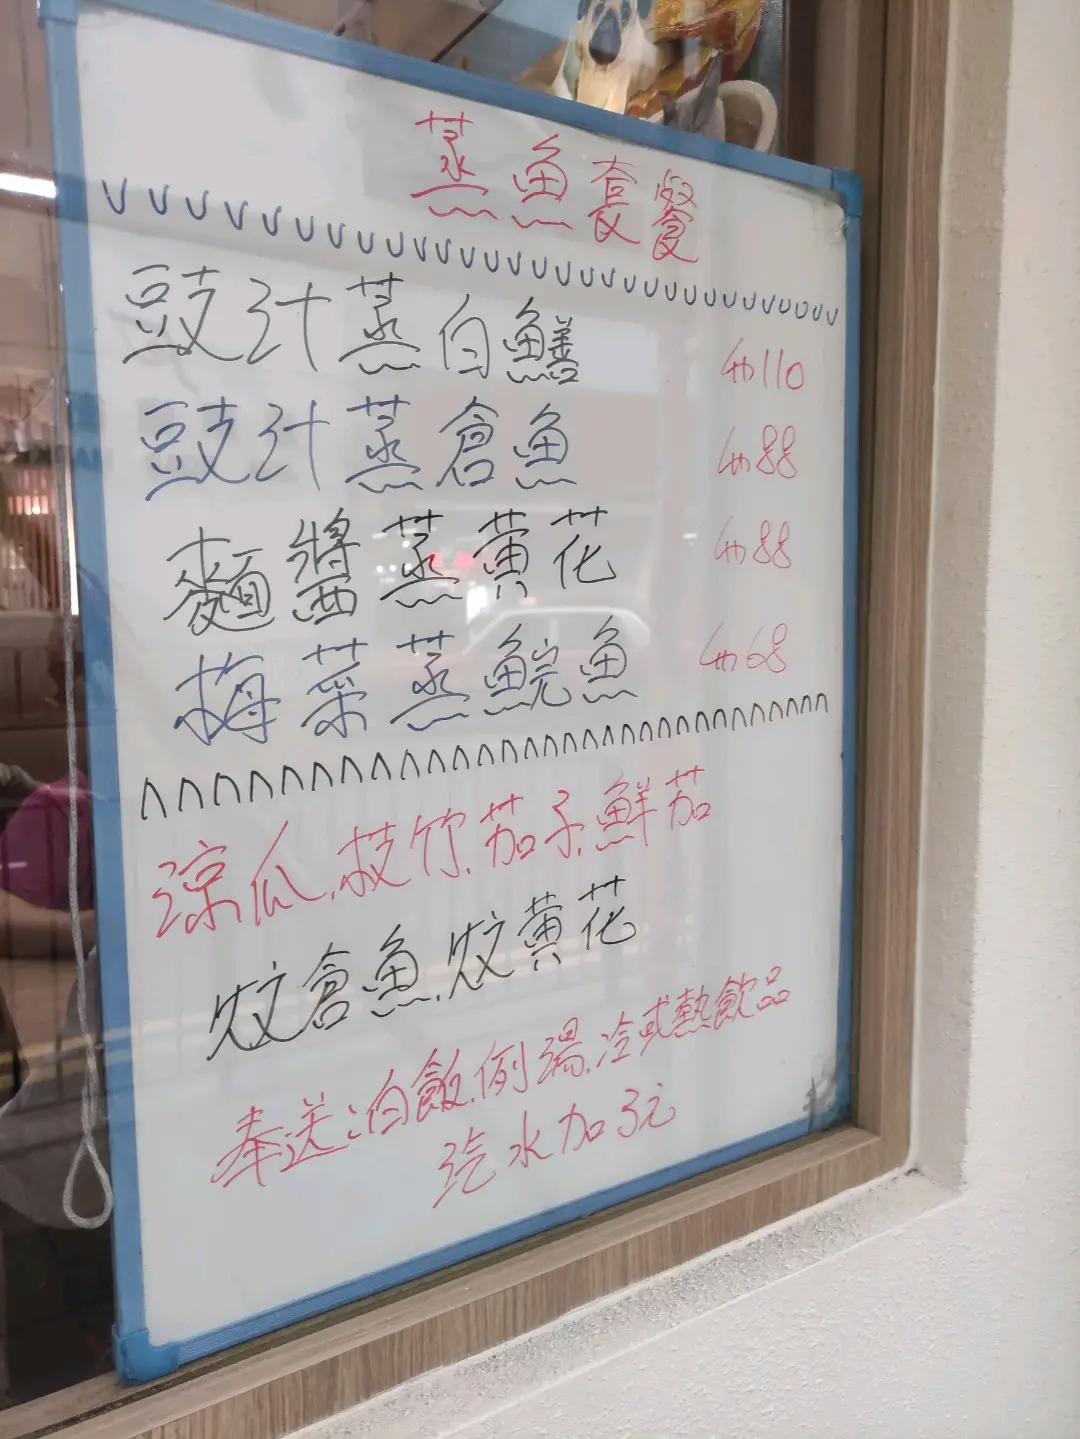 蒸魚套餐
豉汁蒸白鱔 $110
豉汁蒸倉魚 $88
麵醬蒸黃花 $88
梅菜蒸鯇魚 $68
涼瓜.枝竹.茄子.鮮茄
炆倉魚.炆黃花
奉送:白飯.例湯.冷或熱飲品
汽水加3元